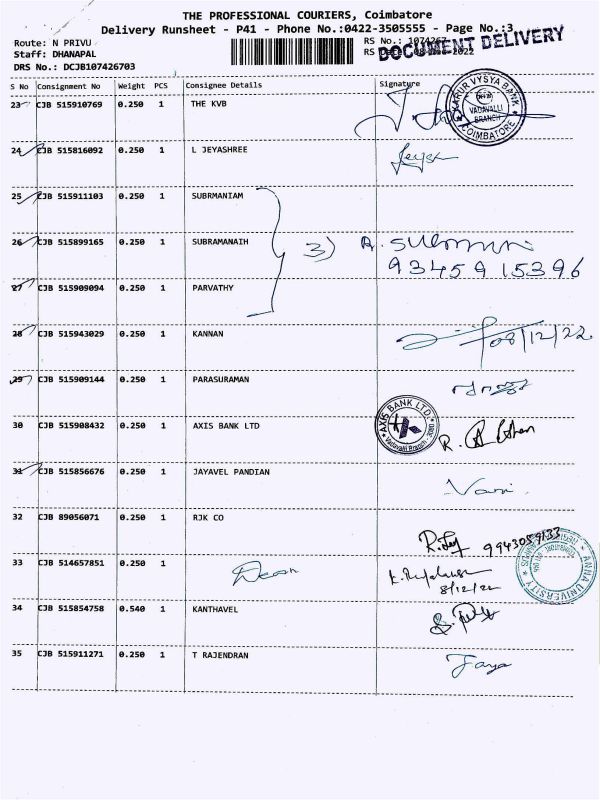 THE PROFESSIONAL COURIERS, Coimbatore
Delivery Runsheet - P41 - Phone No.:0422-3505555 - Page No.:3
Route: N PRIVU
Staff: DHANAPAL
DRS No.: DCJB107426703
RS No.: 1074267
RS Date: 08-Dec-2022
DOCUMENT DELIVERY
S No Consignment No Weight PCS Consignee Details Signature
23 CJB 515910769 0.250 1 THE KVB
KARUR VYSYA BANK
VADAVALLI
BRANCH
COIMBATORE
24 CJB 515816092 0.250 1 L JEYASHREE
25 CJB 515911103 0.250 1 SUBRMANIAM
26 CJB 515899165 0.250 1 SUBRAMANAIH 3)
9345915396
27 CJB 515909094 0.250 1 PARVATHY
28 CJB 515943029 0.250 1 KANNAN 08/12/22
29 CJB 515909144 0.250 1 PARASURAMAN
30 CJB 515908432 0.250 1 AXIS BANK LTD
AXIS BANK LTD.
Vadavalli Branch
31 CJB 515856676 0.250 1 JAYAVEL PANDIAN
32 CJB 89056071 0.250 1 RJK CO
9943059133
33 CJB 514657851 0.250 1 Dean
8/12/22
ANNA UNIVERSITY
34 CJB 515854758 0.540 1 KANTHAVEL
35 CJB 515911271 0.250 1 T RAJENDRAN Jaya